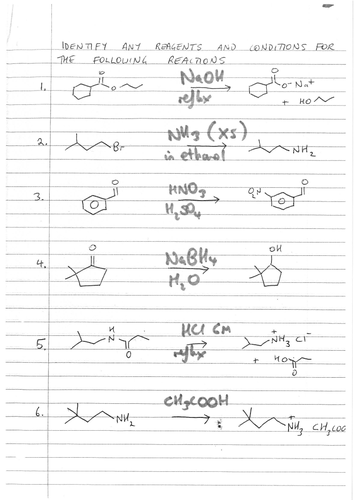 IDENTIFY ANY REAGENTS AND CONDITIONS FOR
THE FOLLOWING REACTIONS
1. O O NaOH reflux O O⁻ Na⁺
+ HO
2. Br NH₃ (XS) in ethanol NH₂
3. O HNO₃ H₂SO₄ O₂N O
4. O NaBH₄ H₂O OH
5. H N O HCl 6M reflux NH₃⁺ Cl⁻
+ HO O
6. NH₂ CH₃COOH NH₃⁺ CH₃COO